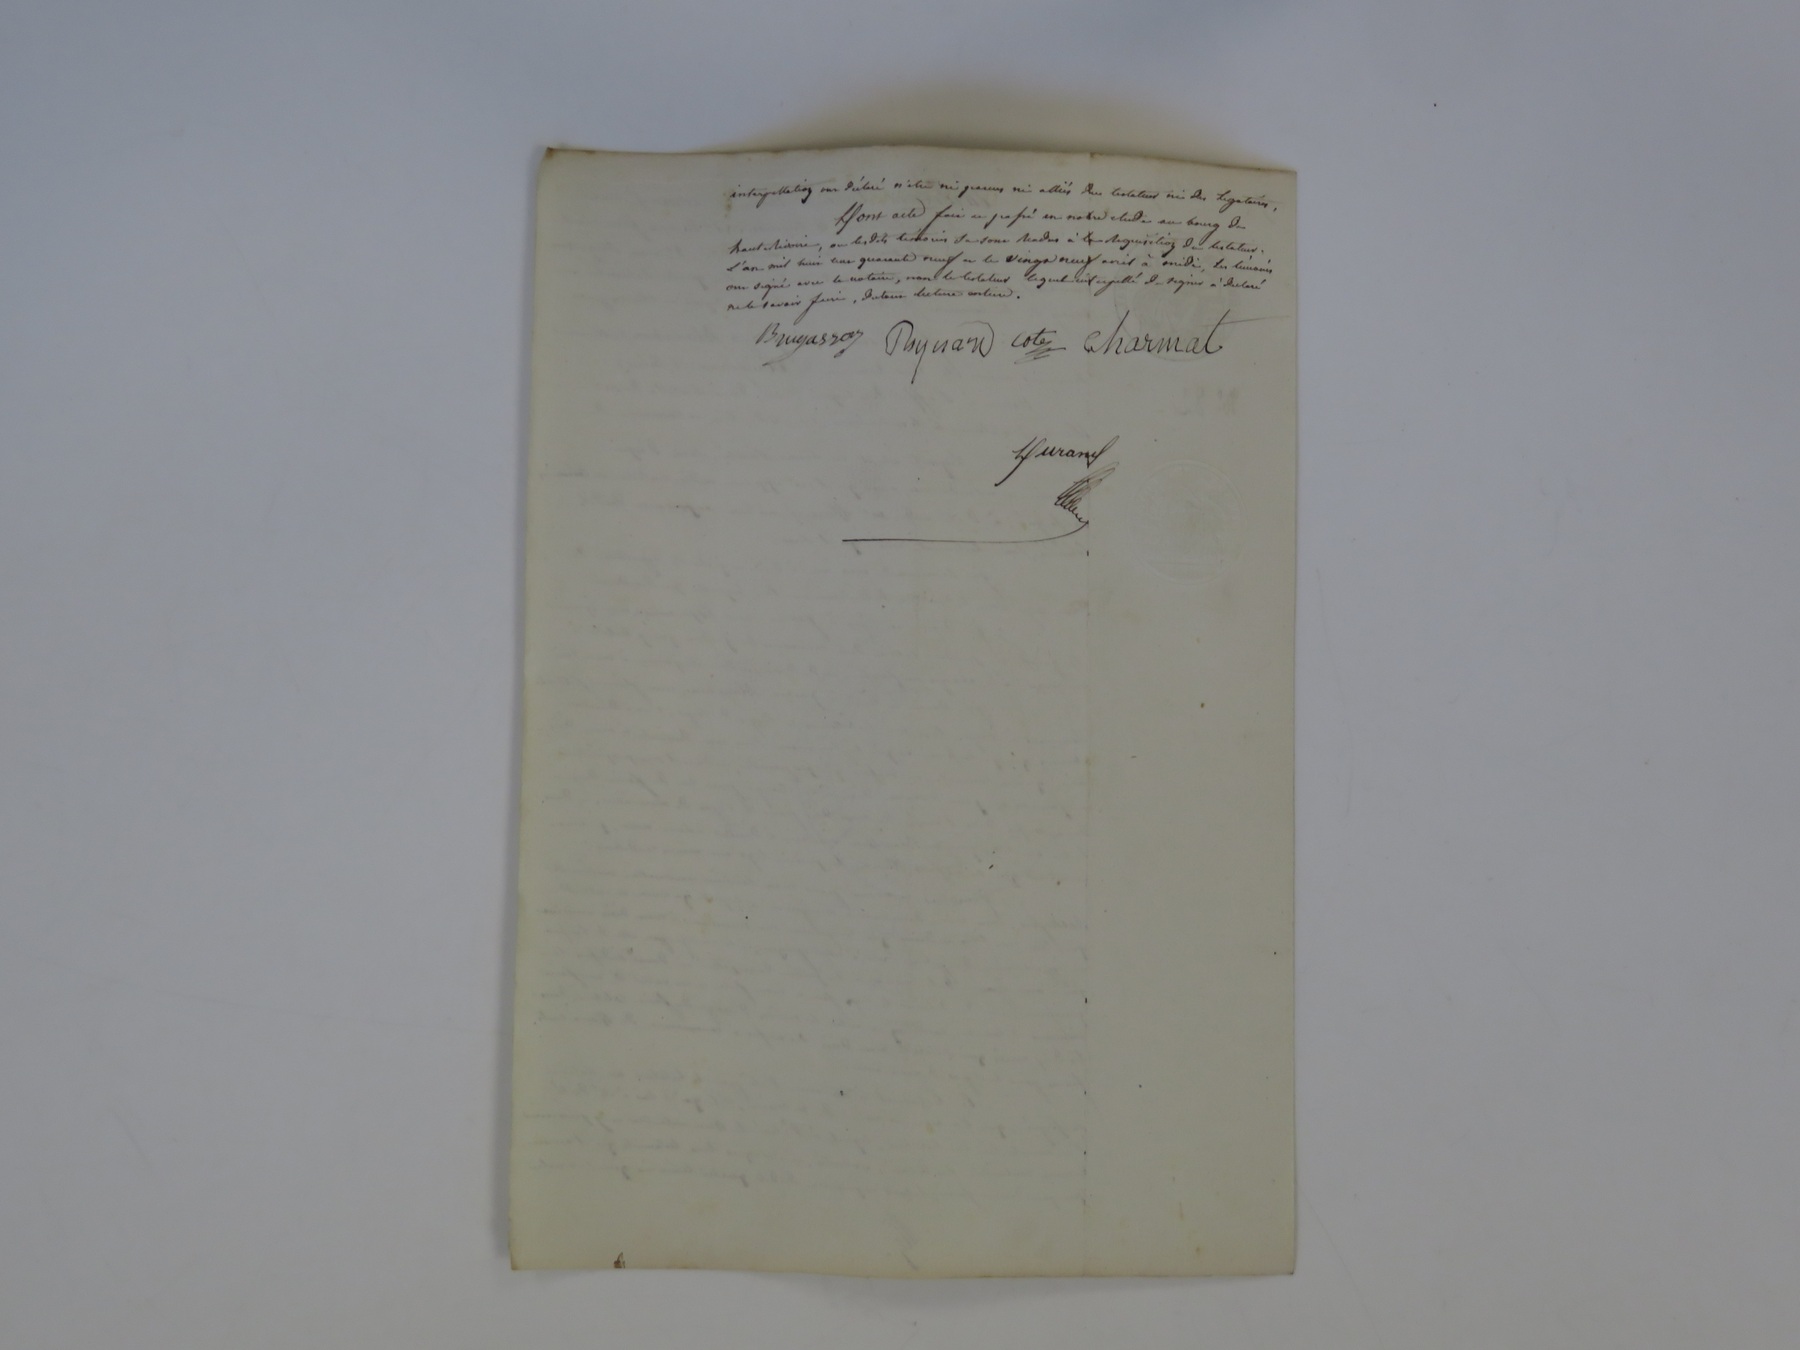 interpellation ont déclaré n'être ni parens ni alliés du testateur ni des légataires,
Dont acte fait et passé en notre étude au bourg de
hauterivoire, où lesdits témoins se sont rendus à la réquisition du testateur.
L'an mil huit cent quarante neuf et le vingt neuf avril à midi, les témoins
ont signé avec le notaire, non le testateur lequel interpellé de signer a déclaré
ne le savoir faire, du tout lecture
Ponard cote Charmat
Durand